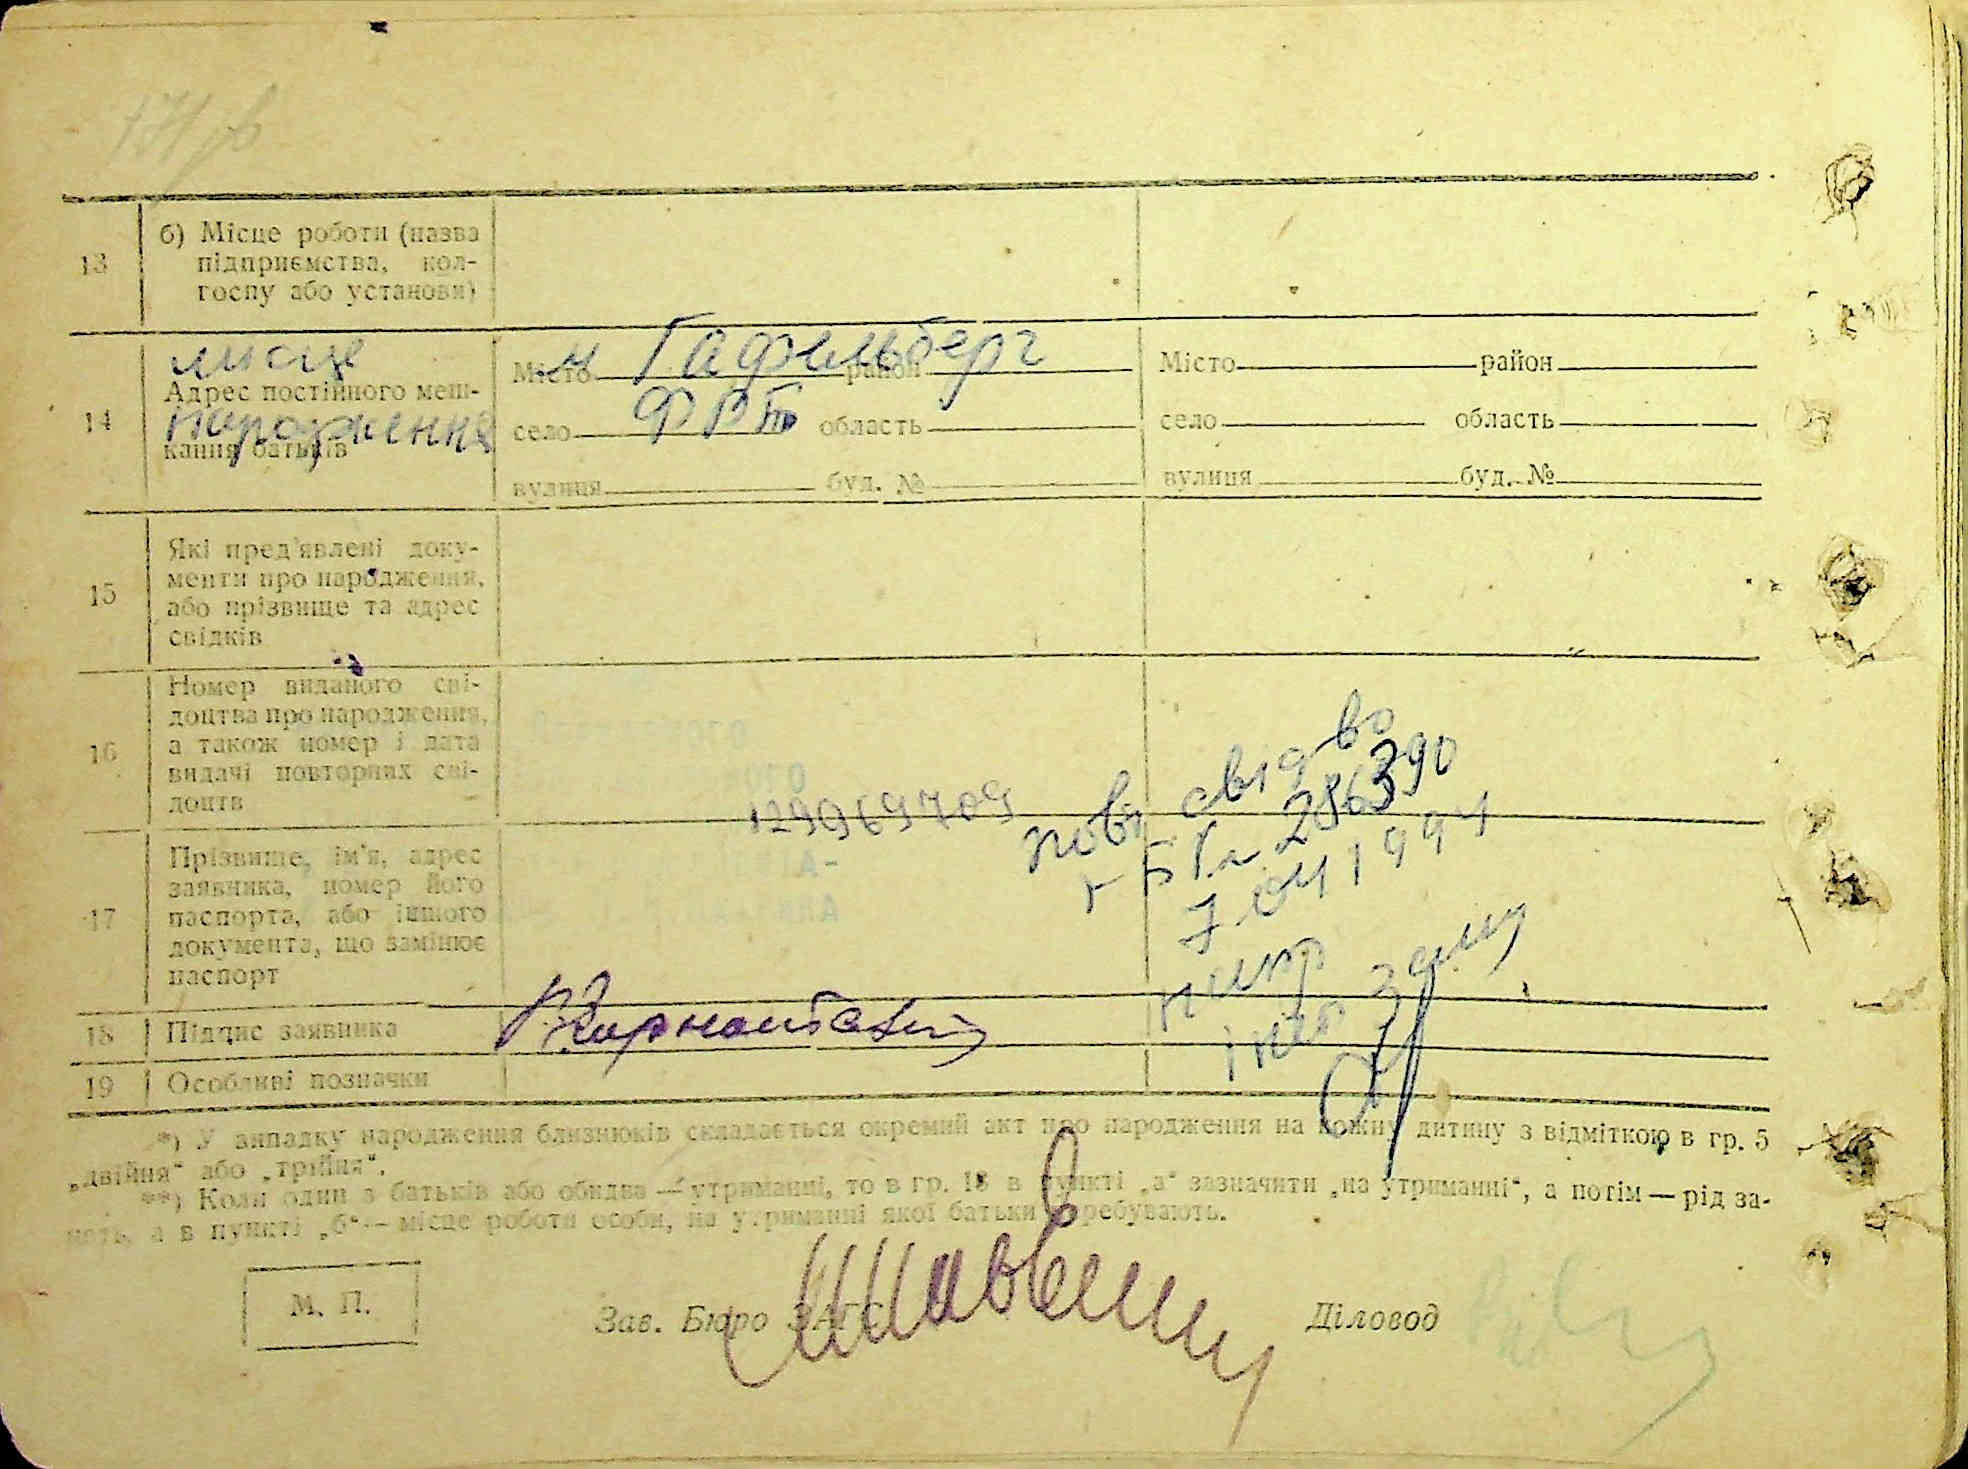 13
б) Місце роботи (назва
підприємства, кол-
госпу або установи)
14
місце
Адрес постійного меш-
народження
кання батьків
Місто м Гафельберг район
село ФРН область
вулиця буд. №
Місто район
село область
вулиця буд. №
15
Які пред'явлені доку-
менти про народження,
або прізвище та адрес
свідків
16
Номер виданого сві-
доцтва про народження,
а також номер і дата
видачі повторних сві-
доцтв
129969709
повт свідво
БГа 286390
7.04 1994
17
Прізвище, ім'я, адрес
заявника, номер його
паспорта, або іншого
документа, що замінює
паспорт
18 Підпис заявника
19 Особливі позначки
*) У випадку народження близнюків складається окремий акт про народження на кожну дитину з відміткою в гр. 5
„двійня“ або „трійня“.
**) Коли один з батьків або обидва — утриманні, то в гр. 13 в пункті „а“ зазначити „на утриманні“, а потім — рід за-
нять, а в пункті „б“ — місце роботи особи, на утриманні якої батьки перебувають.
М. П.
Зав. Бюро ЗАГС
Діловод